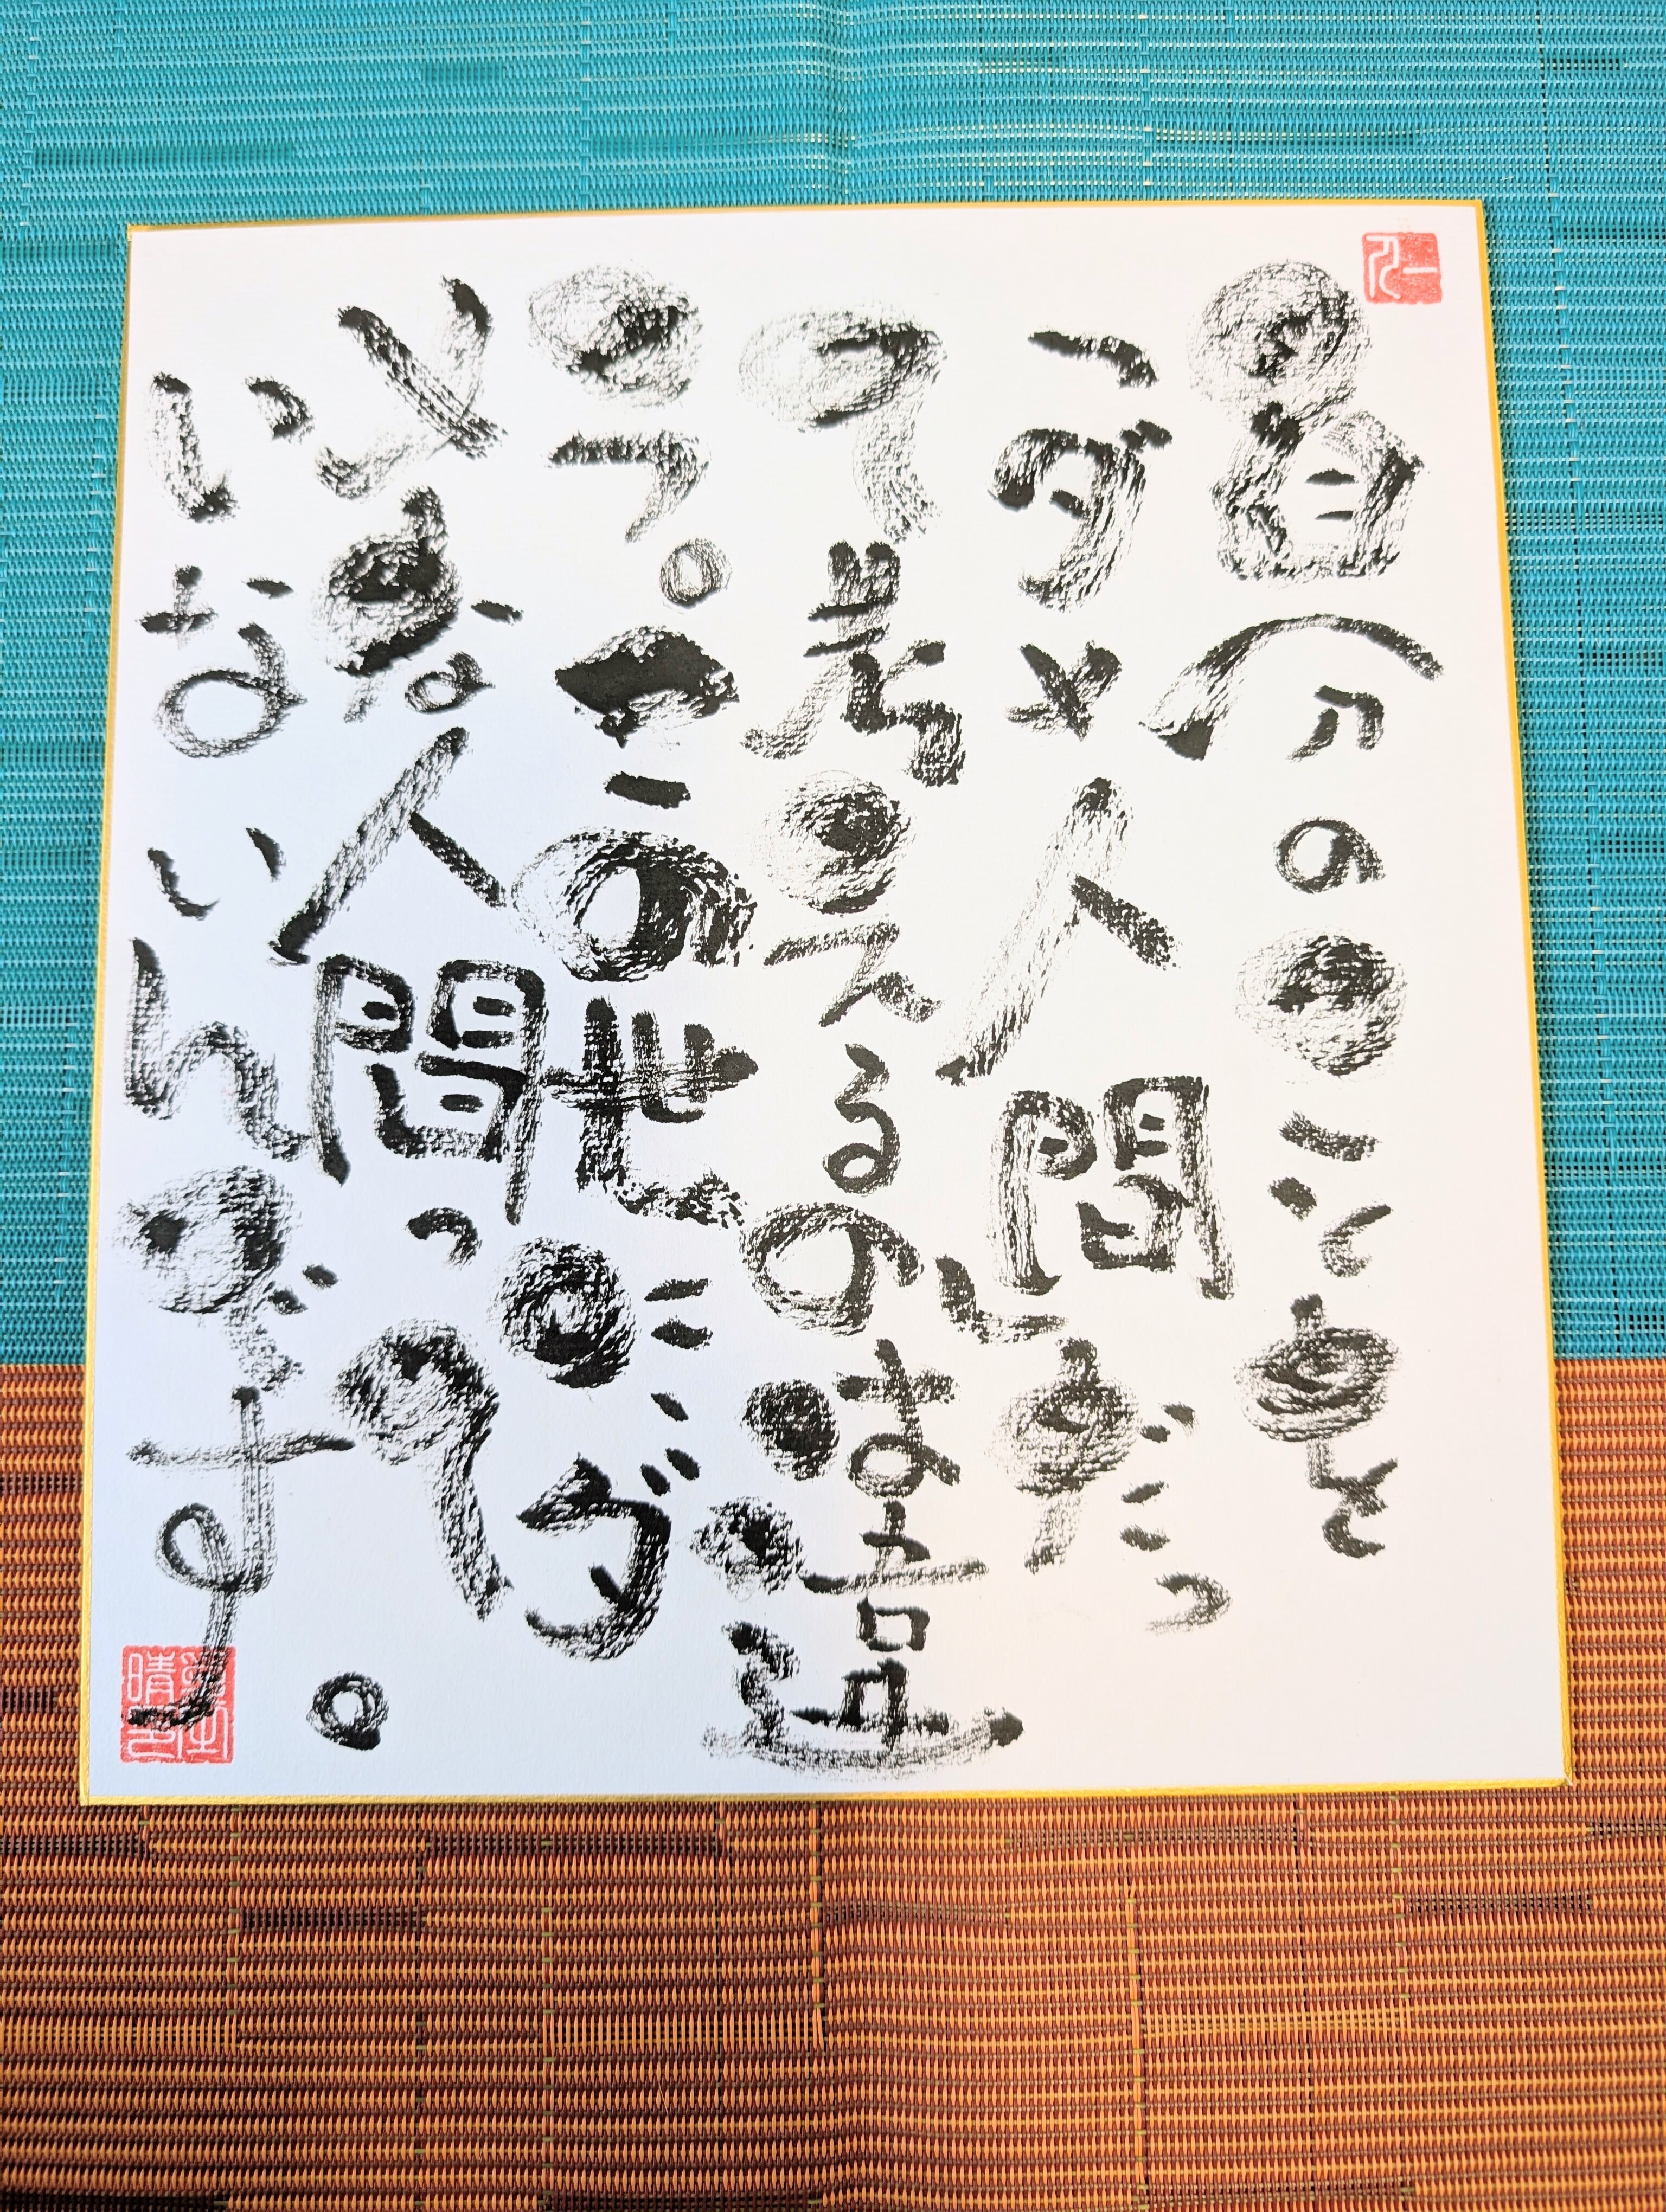 自分のことを
ダメ人間だっ
て考えるのは違
う。この世にダ
メな人間って
いないんだよ。